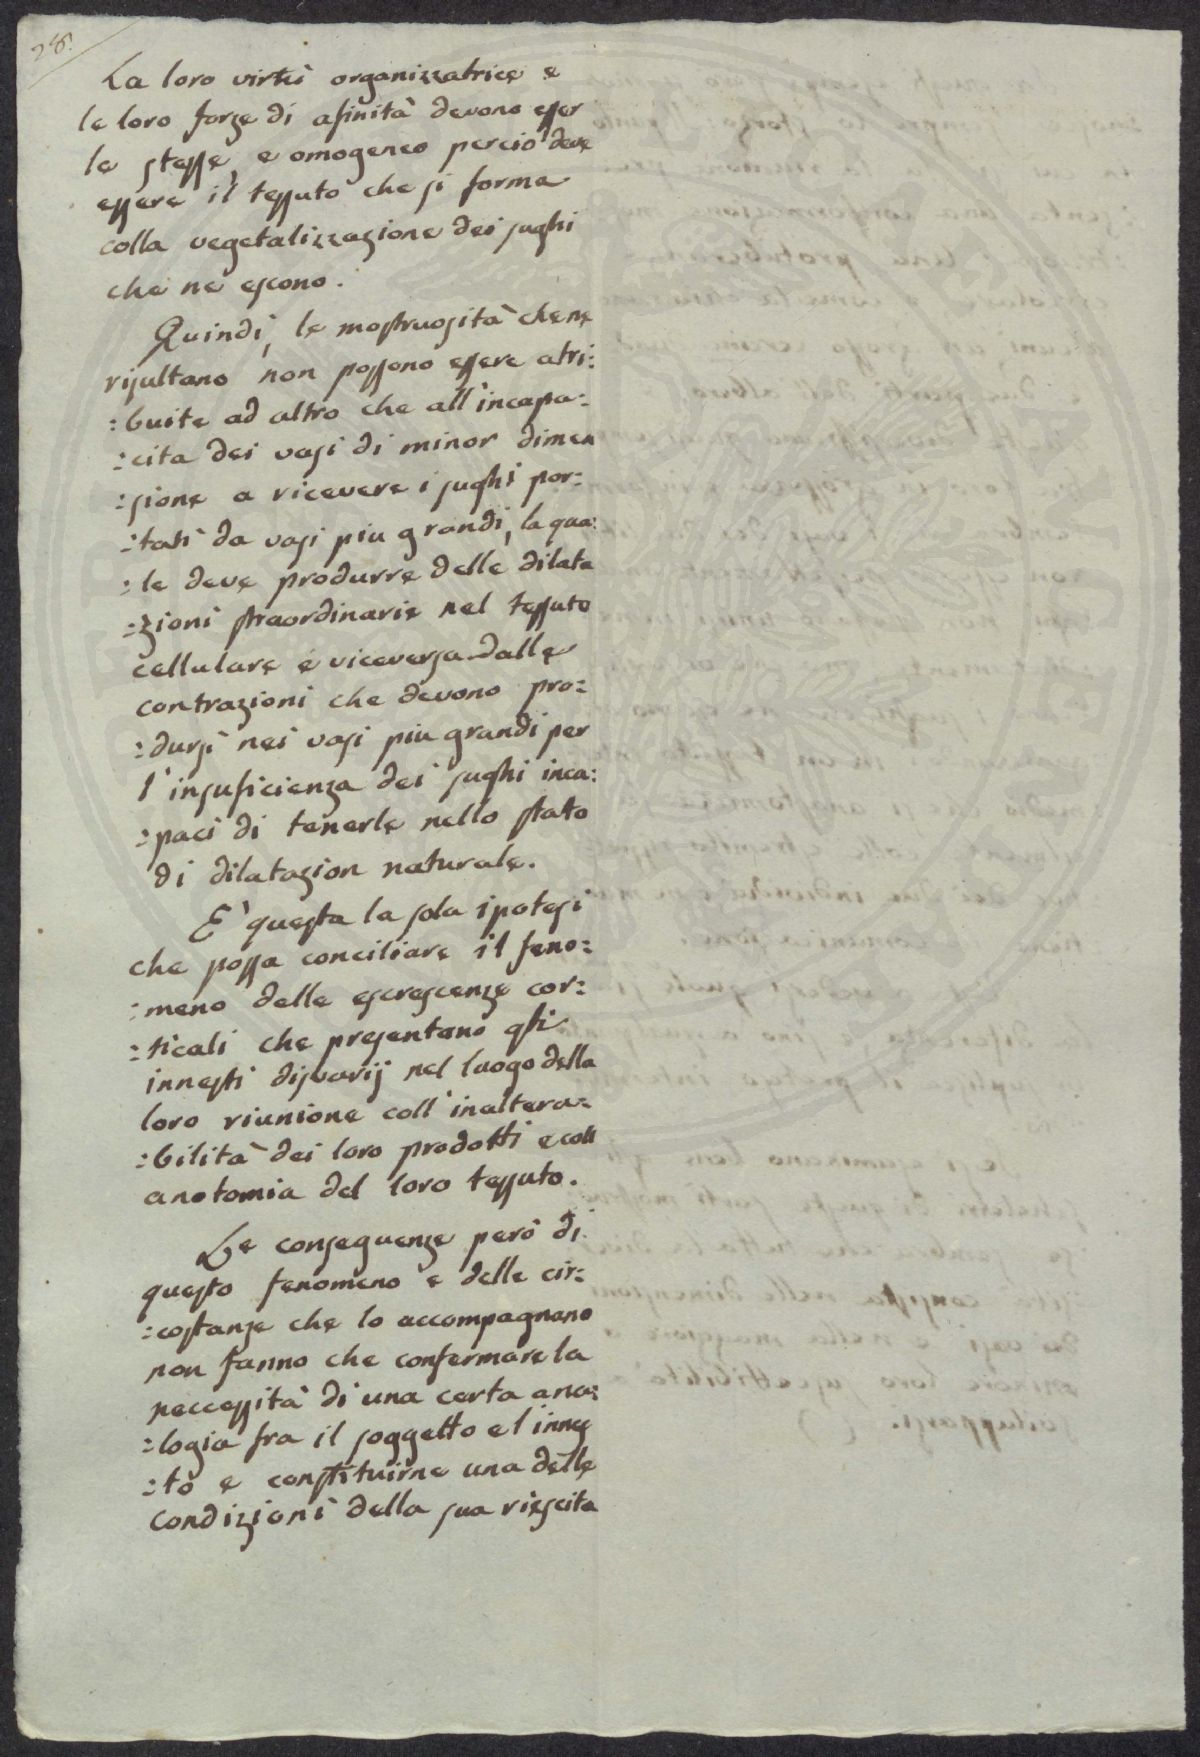 28.
La loro virtù organizzatrice e
le loro forze di afinità devono esser
le stesse, e omogeneo perciò deve
essere il tessuto che si forma
colla vegetalizzazione dei sughi
che ne escono.
Quindi, le mostruosità che ne
risultano non possono essere atri:
:buite ad altro che all'incapa:
:cita dei vasi di minor dimen
:sione a ricevere i sughi por:
:tati da vasi piu grandi, la qua:
:le deve produrre delle dilata
:zioni straordinarie nel tessuto
cellulare e viceversa dalle
contrazioni che devono pro:
:dursi nei vasi piu grandi per
l'insuficienza dei sughi inca:
:paci di tenerle nello stato
di dilatazion naturale.
E' questa la sola ipotesi
che possa conciliare il feno:
:meno delle escrescenze cor:
:ticali che presentano qsti
innesti disvarij nel luogo della
loro riunione coll'inaltera:
:bilità dei loro prodotti e coll
anotomia del loro tessuto.
Le conseguenze però di
questo fenomeno e delle cir:
:costanze che lo accompagnano
non fanno che confermare la
neccessità di una certa ana:
:logia fra il soggetto e l'innes
:to e constituirne una delle
condizioni della sua riescita